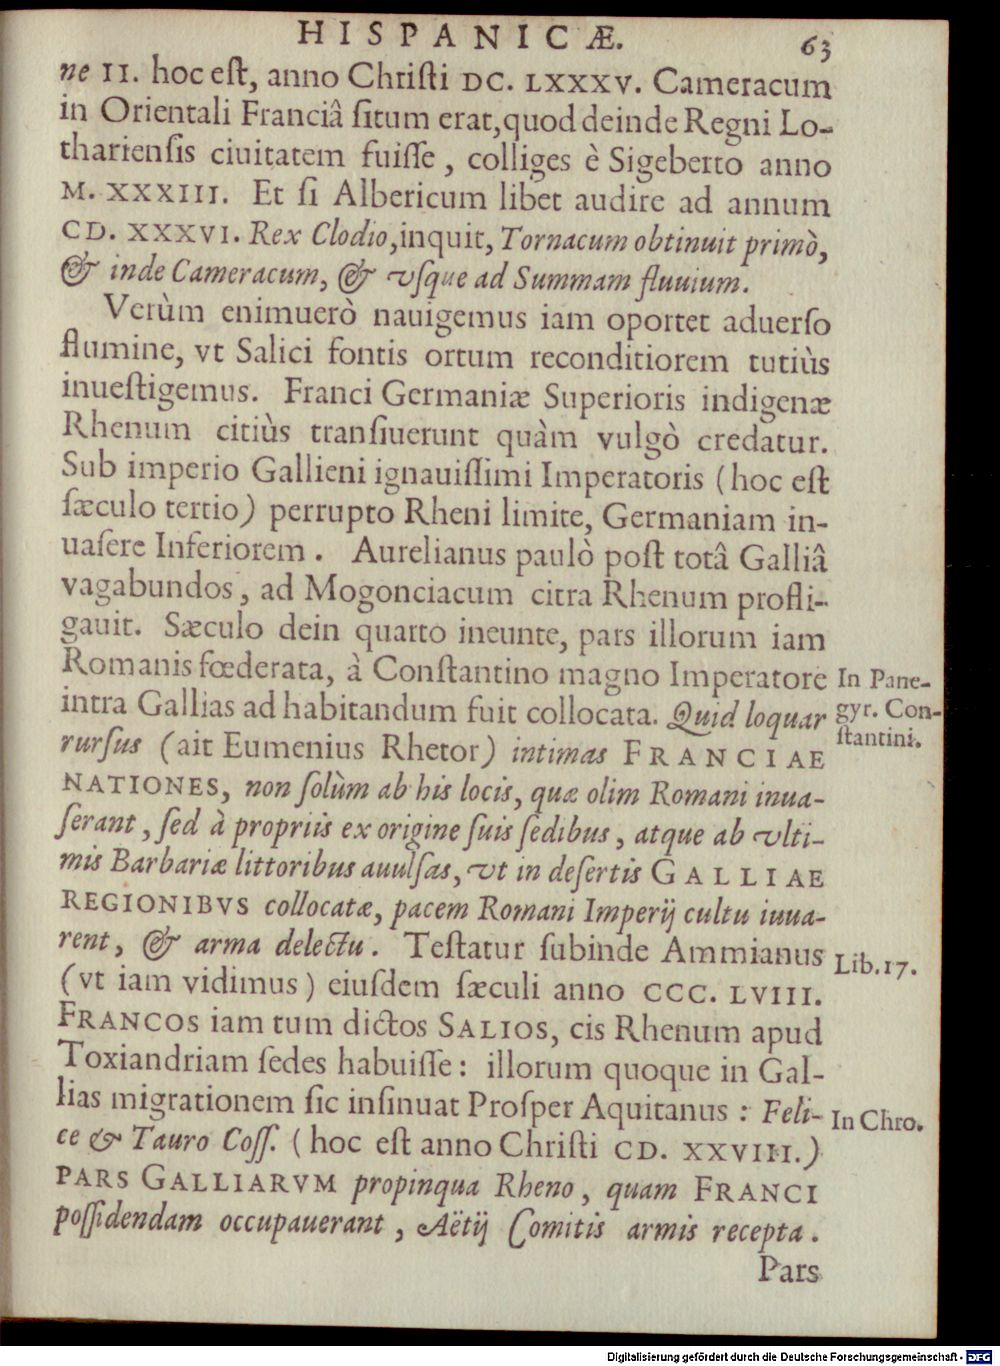 HISPANICÆ. 63
ne II. hoc eſt, anno Chriſti DC. LXXXV. Cameracum
in Orientali Franciâ ſitum erat, quod deinde Regni Lo-
tharienſis ciuitatem fuiſſe, colliges è Sigeberto anno
M. XXXIII. Et ſi Albericum libet audire ad annum
CD. XXXVI. Rex Clodio, inquit, Tornacum obtinuit primò,
& inde Cameracum, & vſque ad Summam fluuium.
Verùm enimuerò nauigemus iam oportet aduerſo
flumine, vt Salici fontis ortum reconditiorem tutiùs
inueſtigemus. Franci Germaniæ Superioris indigenæ
Rhenum citiùs tranſiuerunt quàm vulgò credatur.
Sub imperio Gallieni ignauiſſimi Imperatoris (hoc eſt
ſæculo tertio) perrupto Rheni limite, Germaniam in-
uaſere Inferiorem. Aurelianus paulò poſt totâ Galliâ
vagabundos, ad Mogonciacum citra Rhenum profli-
gauit. Sæculo dein quarto ineunte, pars illorum iam
Romanis fœderata, à Conſtantino magno Imperatore
intra Gallias ad habitandum fuit collocata. Quid loquar
rurſus (ait Eumenius Rhetor) intimas FRANCIAE
NATIONES, non ſolùm ab his locis, quæ olim Romani inua-
ſerant, ſed à propriis ex origine ſuis ſedibus, atque ab vlti-
mis Barbariæ littoribus auulſas, vt in deſertis GALLIAE
REGIONIBVS collocatæ, pacem Romani Imperij cultu iuua-
rent, & arma delectu. Teſtatur ſubinde Ammianus
(vt iam vidimus) eiuſdem ſæculi anno CCC. LVIII.
FRANCOS iam tum dictos SALIOS, cis Rhenum apud
Toxiandriam ſedes habuiſſe: illorum quoque in Gal-
lias migrationem ſic inſinuat Proſper Aquitanus: Feli-
ce & Tauro Coſſ. (hoc eſt anno Chriſti CD. XXVIII.)
PARS GALLIARVM propinqua Rheno, quam FRANCI
poſſidendam occupauerant, Aëtij Comitis armis recepta.
Pars
In Pane-
gyr. Con-
ſtantini.
Lib. 17.
In Chro.
Digitalisierung gefördert durch die Deutsche Forschungsgemeinschaft - DFG